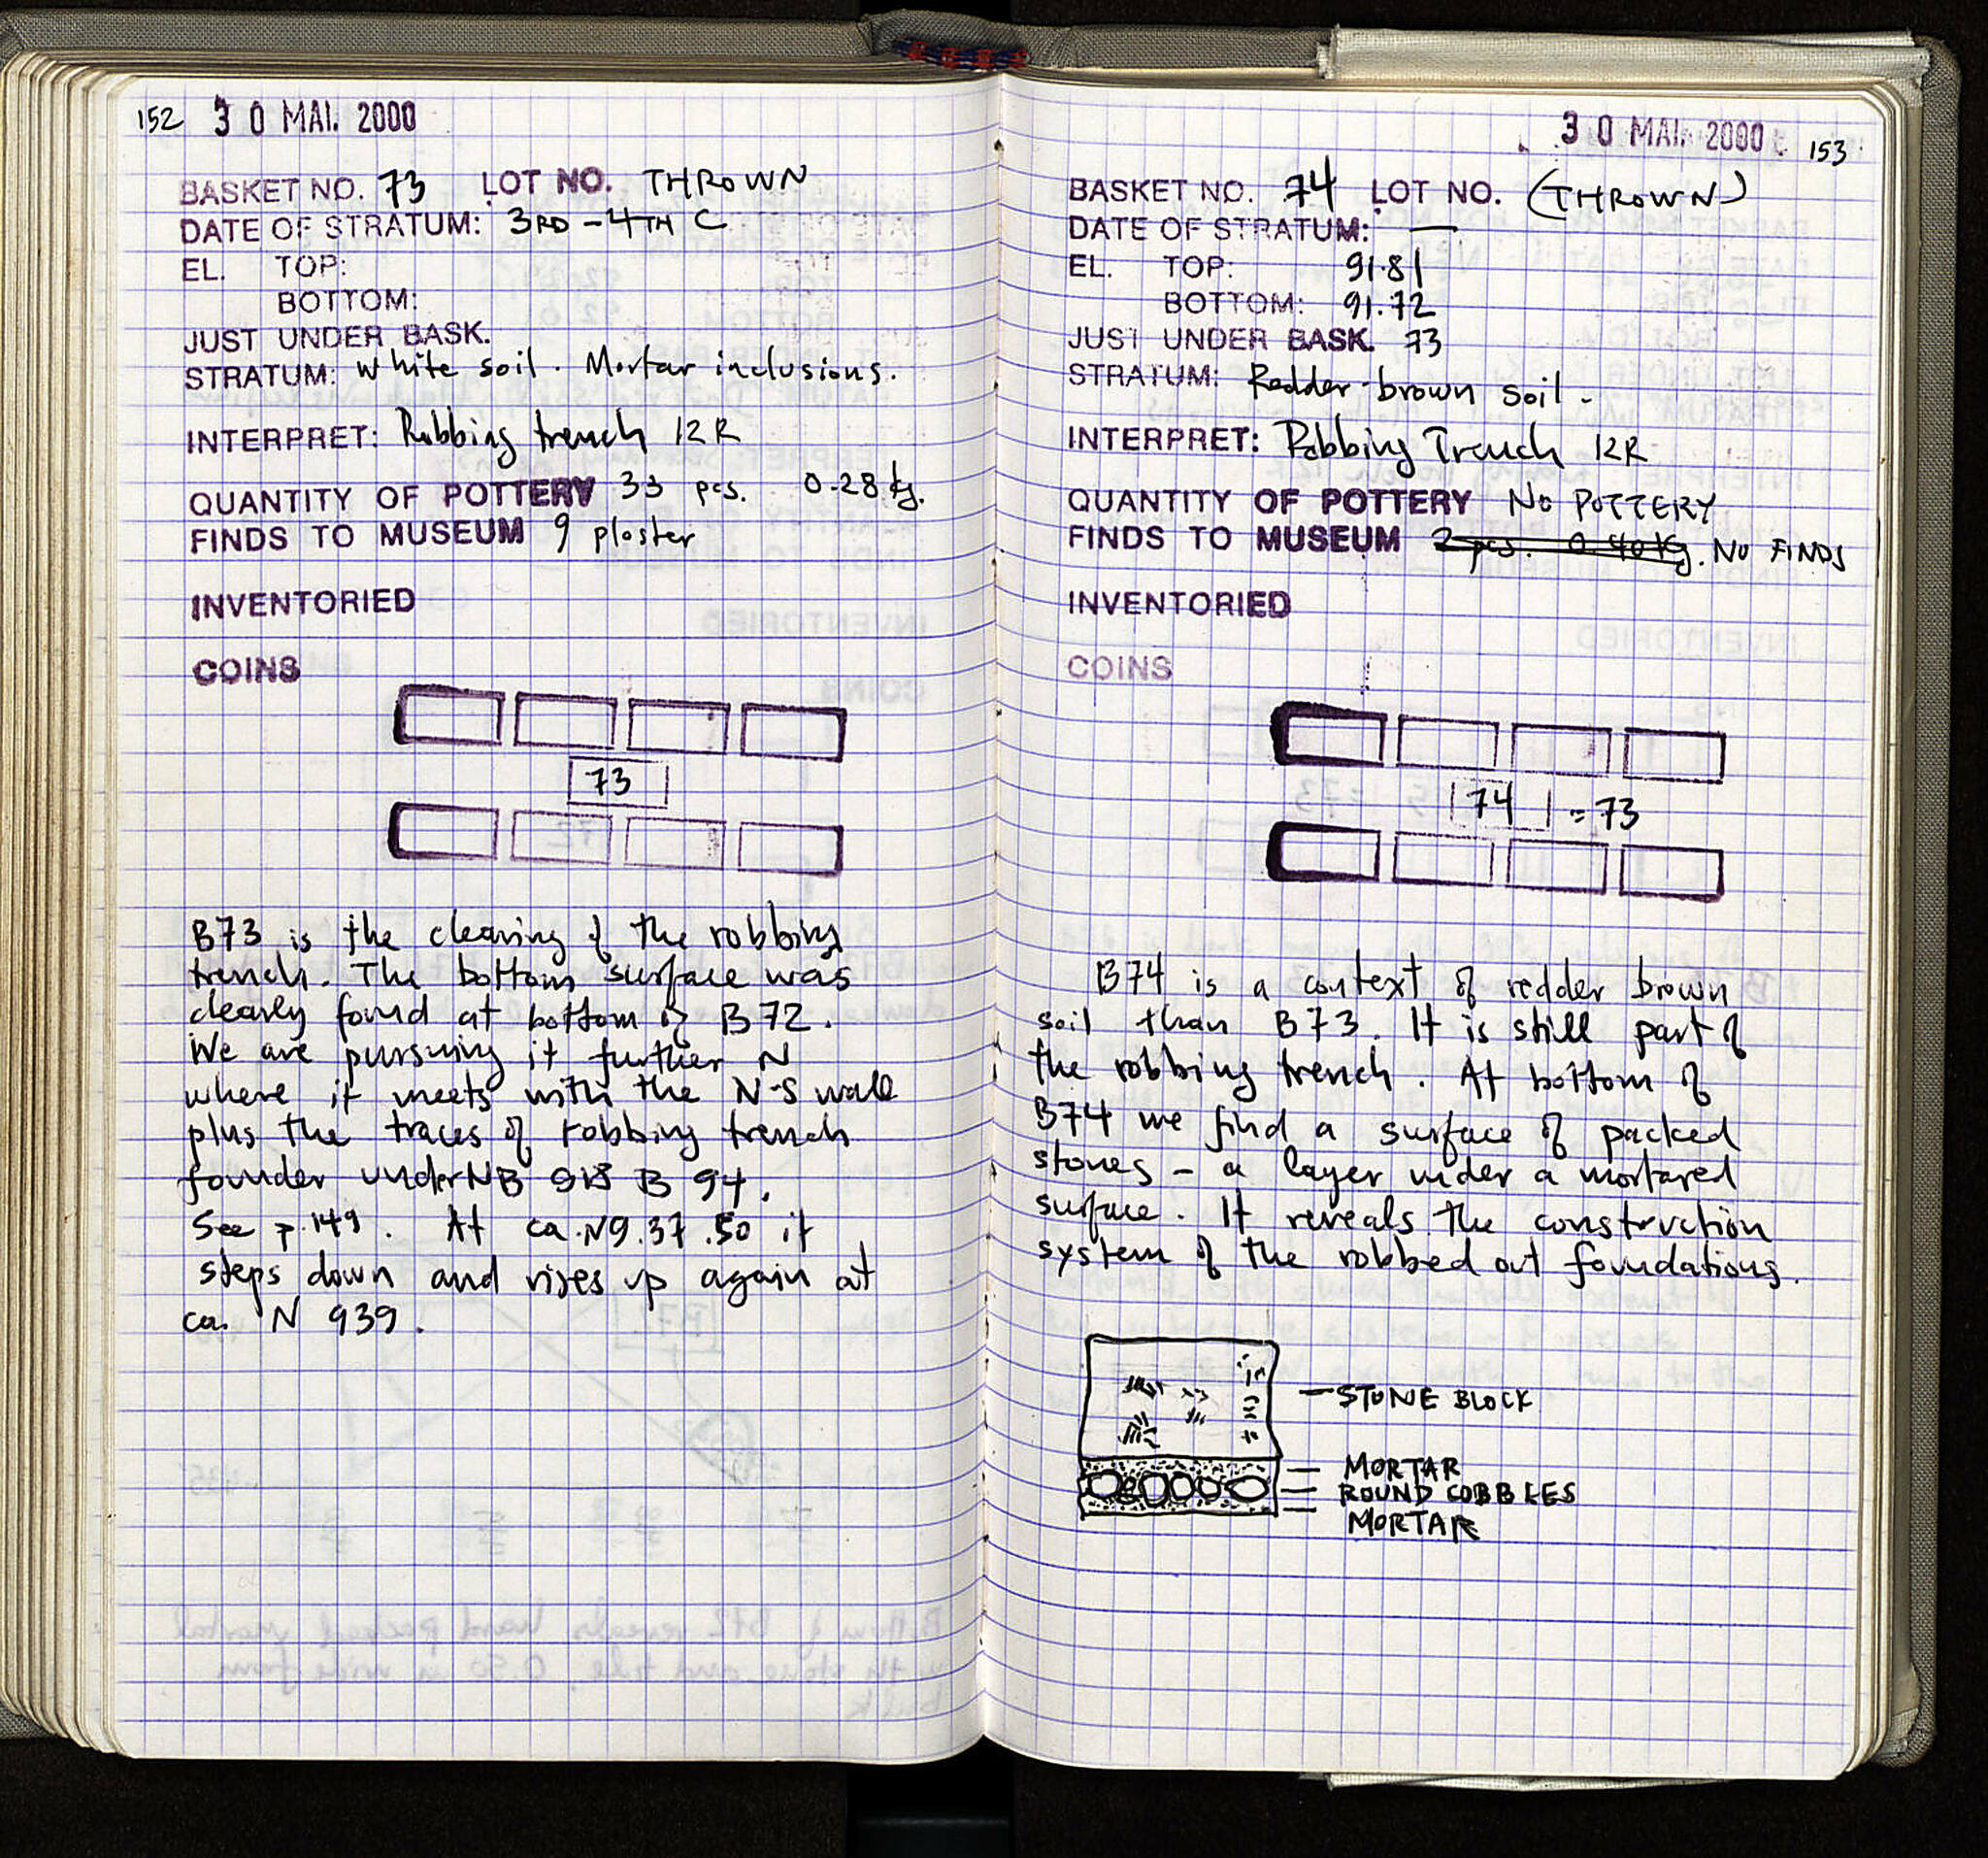 152 30 MAI. 2000
BASKET NO. 73 LOT NO. THROWN
DATE OF STRATUM: 3RD - 4TH C
EL. TOP:
BOTTOM:
JUST UNDER BASK.
STRATUM: White soil. Mortar inclusions.
INTERPRET: Robbing trench 12R
QUANTITY OF POTTERY 33 pcs. 0.28 kg.
FINDS TO MUSEUM 9 plaster
INVENTORIED
COINS
73
B73 is the clearing of the robbing
trench. The bottom surface was
clearly found at bottom of B72.
We are pursuing it further N
where it meets with the N-S wall
plus the traces of robbing trench
founder under NB B 94.
See p.149. At ca. N9.37.50 it
steps down and rises up again at
ca. N 939.
30 MAI. 2000 153
BASKET NO. 74 LOT NO. (THROWN)
DATE OF STRATUM: —
EL. TOP: 91.81
BOTTOM: 91.72
JUST UNDER BASK. 73
STRATUM: Redder brown soil -
INTERPRET: Robbing Trench 12R
QUANTITY OF POTTERY NO POTTERY
FINDS TO MUSEUM 2 pcs. 0.40 kg. NO FINDS
INVENTORIED
COINS
74 = 73
B74 is a context of redder brown
soil than B73. It is still part of
the robbing trench. At bottom of
B74 we find a surface of packed
stones - a layer under a mortared
surface. It reveals the construction
system of the robbed out foundations.
- STONE BLOCK
- MORTAR
- ROUND COBBLES
- MORTAR